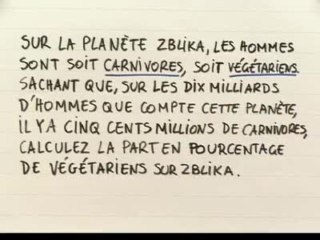 SUR LA PLANÈTE ZBLIKA, LES HOMMES
SONT SOIT CARNIVORES, SOIT VÉGÉTARIENS.
SACHANT QUE, SUR LES DIX MILLIARDS
D'HOMMES QUE COMPTE CETTE PLANÈTE,
IL Y A CINQ CENTS MILLIONS DE CARNIVORES,
CALCULEZ LA PART EN POURCENTAGE
DE VÉGÉTARIENS SUR ZBLIKA.